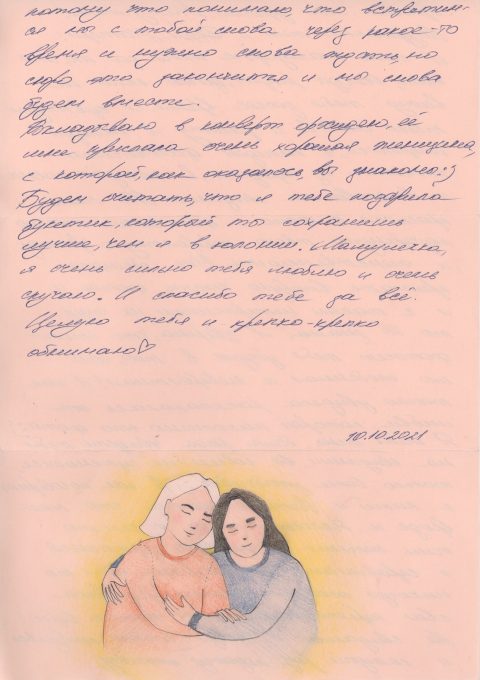 потому что понимаю, что встретим-
ся мы с тобой снова через какое-то
время и нужно снова ждать, но
скоро это закончится и мы снова
будем вместе.
Вкладываю в конверт орхидею, её
мне прислала очень хорошая женщина,
с которой, как оказалось, вы знакомы :)
Будем считать, что я тебе подарила
букетик, который ты сохранишь
лучше, чем я в колонии. Мамулечка,
я очень сильно тебя люблю и очень
скучаю. И спасибо тебе за всё.
Целую тебя и крепко-крепко
обнимаю♡
10.10.2021